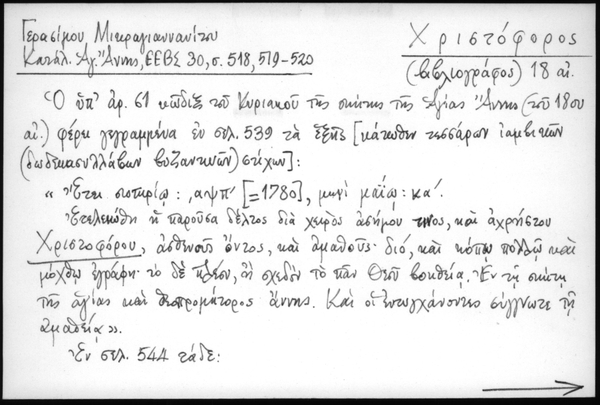 Γερασίμου Μικραγιαννανίτου
Κατάλ. Ἁγ. Ἄννης, ΕΕΒΣ 30, σ. 518, 519-520
Χριστόφορος
(βιβλιογράφος) 18 αἰ.
Ὁ ὑπ' ἀρ. 61 κώδιξ τοῦ Κυριακοῦ τῆς σκήτης τῆς Ἁγίας Ἄννης (τοῦ 18ου
αἰ.) φέρει γεγραμμένα ἐν σελ. 539 τὰ ἑξῆς [κάτωθεν τεσσάρων ἰαμβικῶν
(δωδεκασυλλάβων βυζαντινῶν) στίχων]:
« Ἔτει σωτηρίῳ: ͵αψπ' [=1780], μηνὶ μαΐῳ: κα'.
Ἐτελειώθη ἡ παροῦσα δέλτος διὰ χειρὸς ἀσήμου τινος, καὶ ἀχρήστου
Χριστοφόρου, ἀσθενοῦς ὄντος, καὶ ἀμαθοῦς· διό, καὶ κόπῳ πολλῷ καὶ
μόχθῳ ἐγράφη· τὸ δὲ πλέον, ἢ σχεδὸν τὸ πᾶν Θεοῦ βοηθείᾳ. Ἐν τῇ σκήτῃ
τῆς ἁγίας καὶ θεοπρομάτορος ἄννης. Καὶ οἱ ἐντυγχάνοντες σύγγνωτε τῇ
ἀμαθείᾳ ».
Ἐν σελ. 544 τάδε: